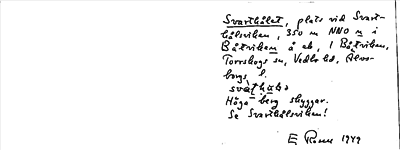 Svarthålet, plats vid Svart-
hålsviken, 350 m NNO n i
Båtviken å ek, i Båtviken,
Torrskogs sn, Vedbo hd, Älvs-
borgs l.
Höga berg skuggar.
Se Svarthålsviken!
E Rosen 1949